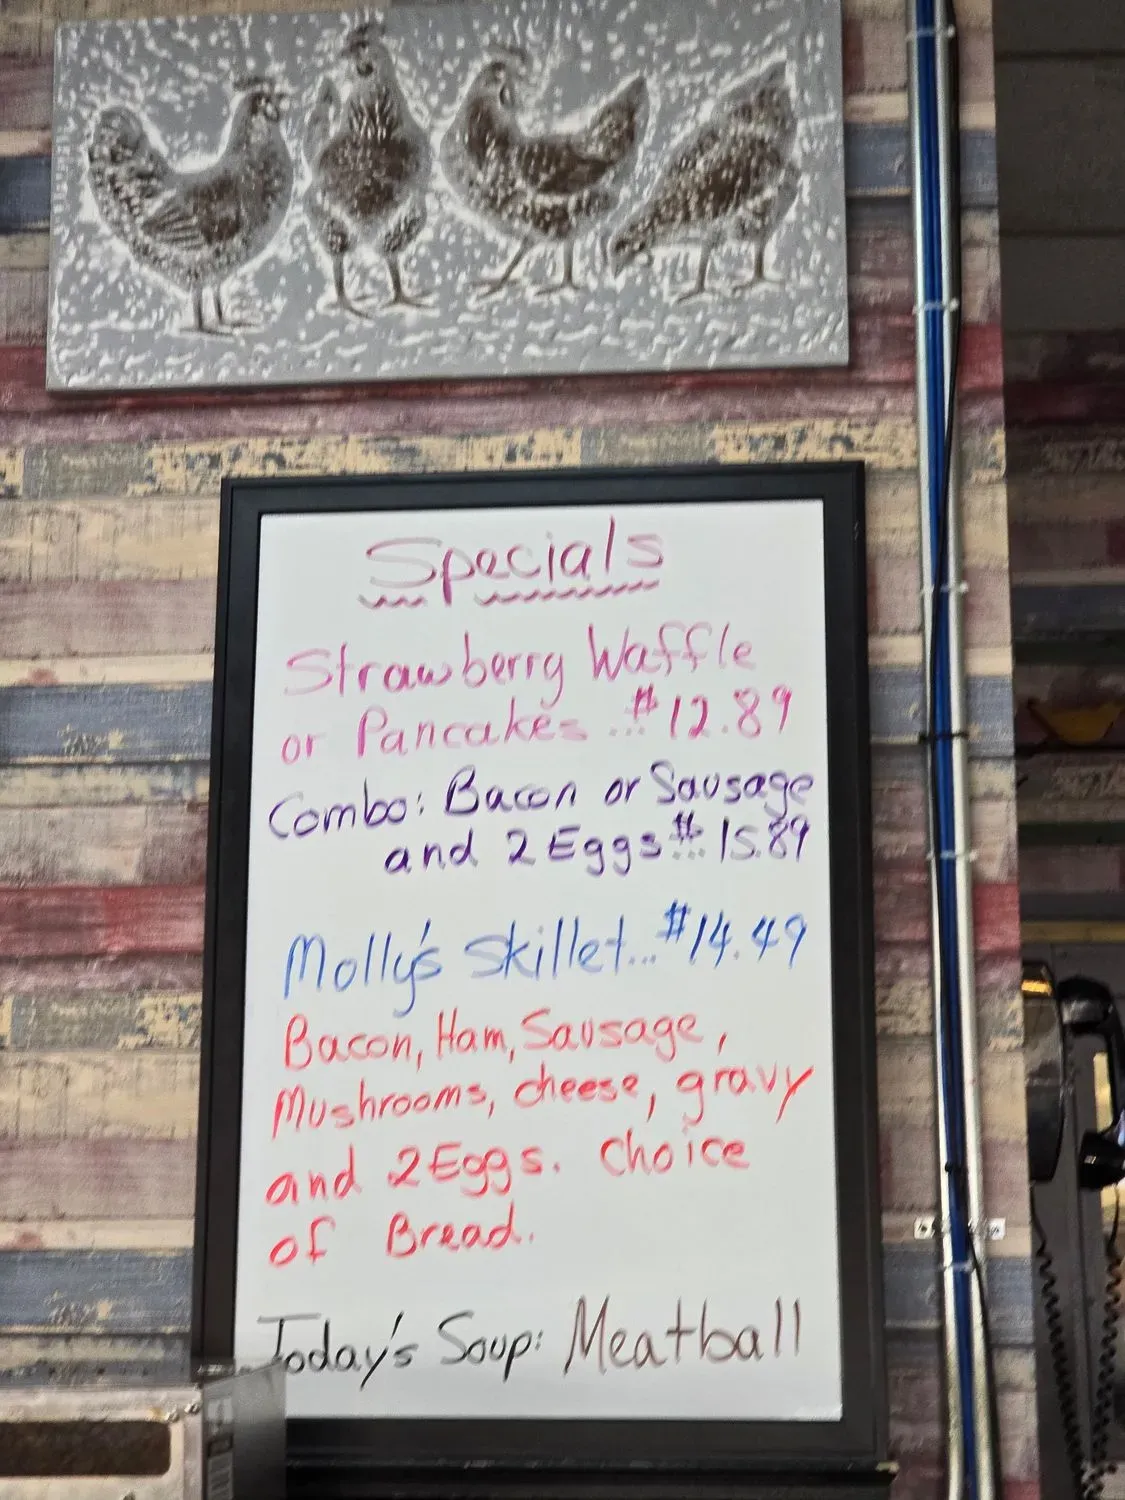 Specials
Strawberry Waffle
or Pancakes...$12.89
Combo: Bacon or Sausage
and 2 Eggs...$15.89
Molly's Skillet...$14.49
Bacon, Ham, Sausage,
Mushrooms, cheese, gravy
and 2 Eggs. Choice
of Bread.
Today's Soup: Meatball